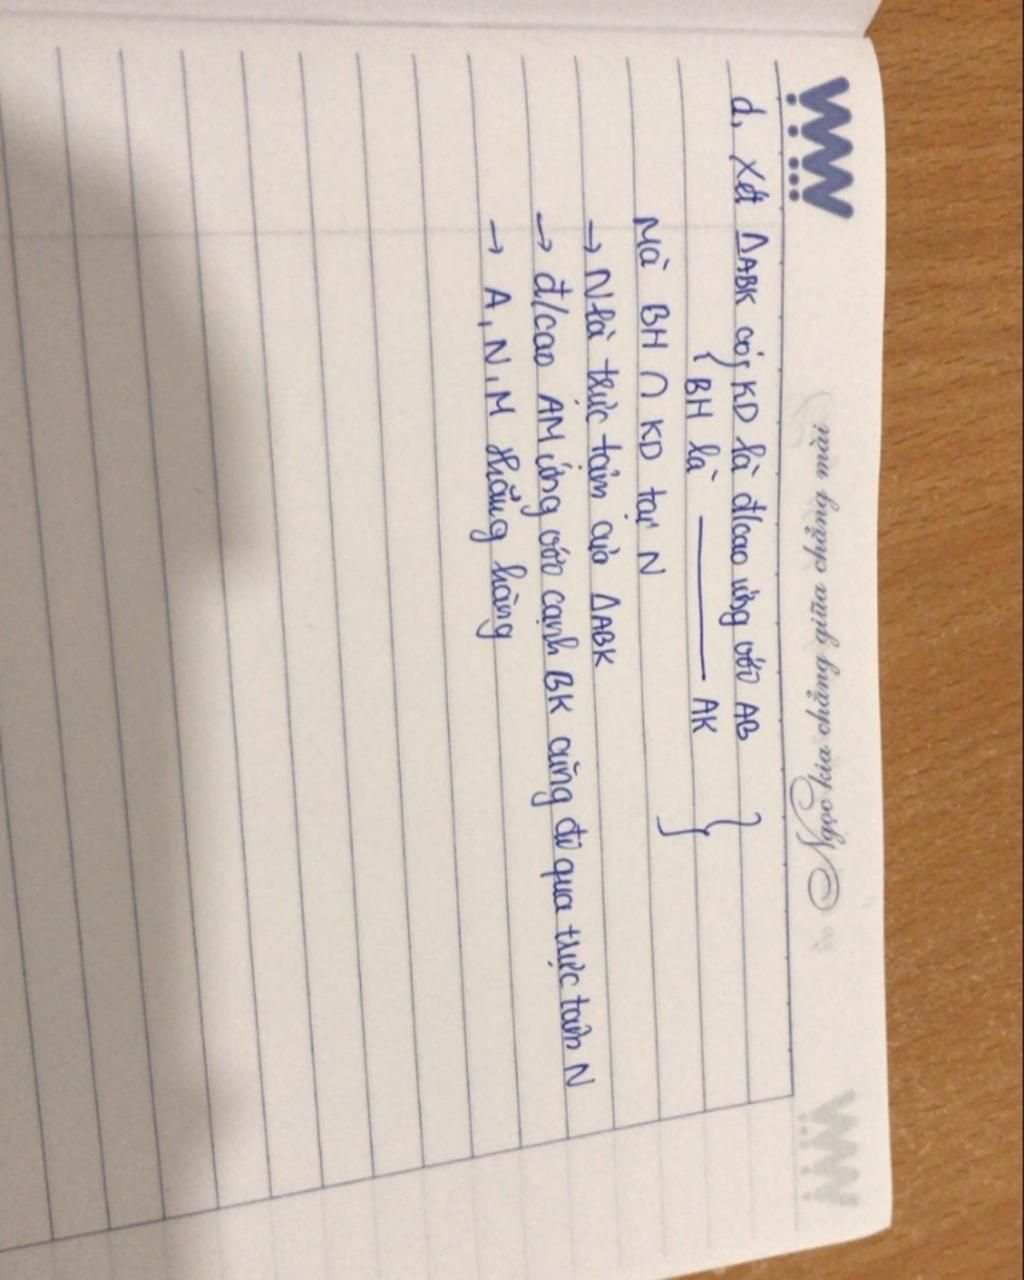 Ngọc kia chẳng giũa chẳng mài
d, Xét ΔABK có { KD là đ/cao ứng với AB }
BH là ——— AK
Mà BH ∩ KD tại N
→ N là trực tâm của ΔABK
→ đ/cao AM ứng với cạnh BK cũng đi qua trực tâm N
→ A, N, M thẳng hàng